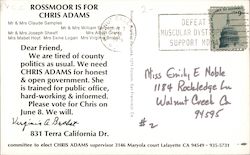 ROSSMOOR IS FOR
CHRIS ADAMS
Mr & Mrs Claude Samples
Mr & Mrs William
Mr & Mrs Joseph Shwaif Mrs
Mrs Mabel Hoyt Mrs Elaine Lugan Mrs Virginia
Dear Friend,
We are tired of county
politics as usual. We need
CHRIS ADAMS for honest
& open government. She
is trained for public office,
hard-working & informed.
Please vote for Chris on
June 8. We will.
831 Terra California Dr.
DEFEAT
MUSCULAR DYSTROPHY
SUPPORT
Miss Emily E Noble
1184 Rockledge Ln
Walnut Creek Ca
94595
#2
committee to elect CHRIS ADAMS supervisor 3146 Maryola court Lafayette CA 94549 - 935-5731